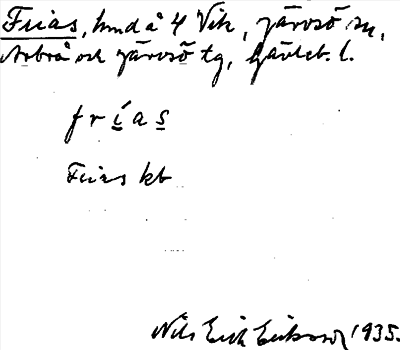 Frias, hmd å 4 Vik, Järvsö sn,
Arbrå och Järvsö tg, Gävleb. l.
frías
Frias kb
Nils Erik Eriksson 1935.